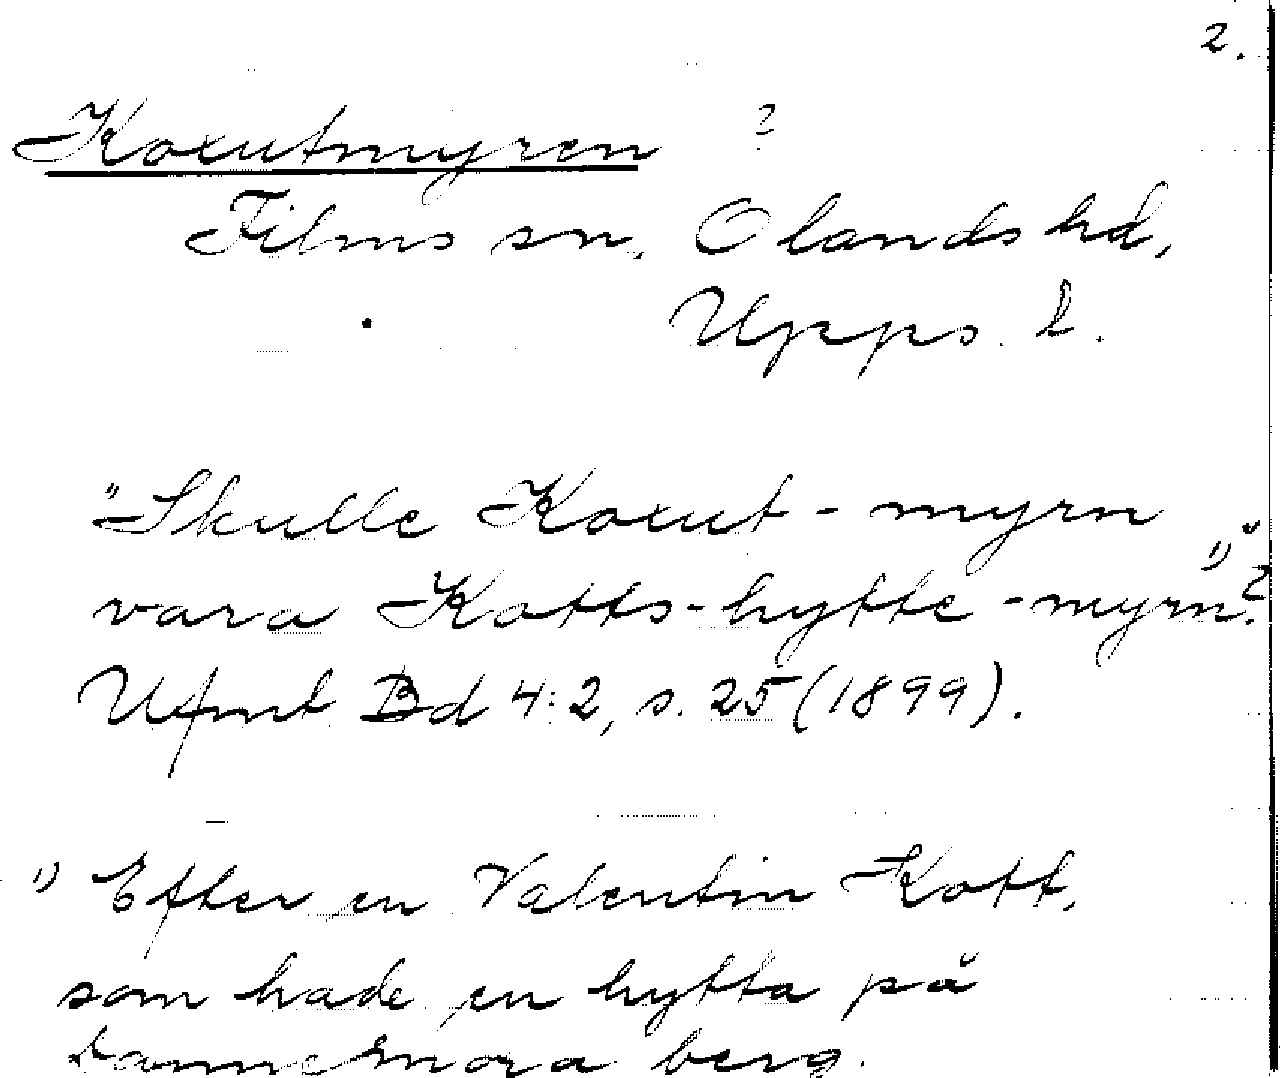 2.
Koxutmyren ?
Films sn, Olands hd,
Upps. l.
"Skulle Koxut-myrn
vara Kotts-hytte-myrn? 1)"
Ufmt Bd 4:2, s. 25 (1899).
1) Efter en Valentin Kott,
som hade en hytta på
Dannemora berg.